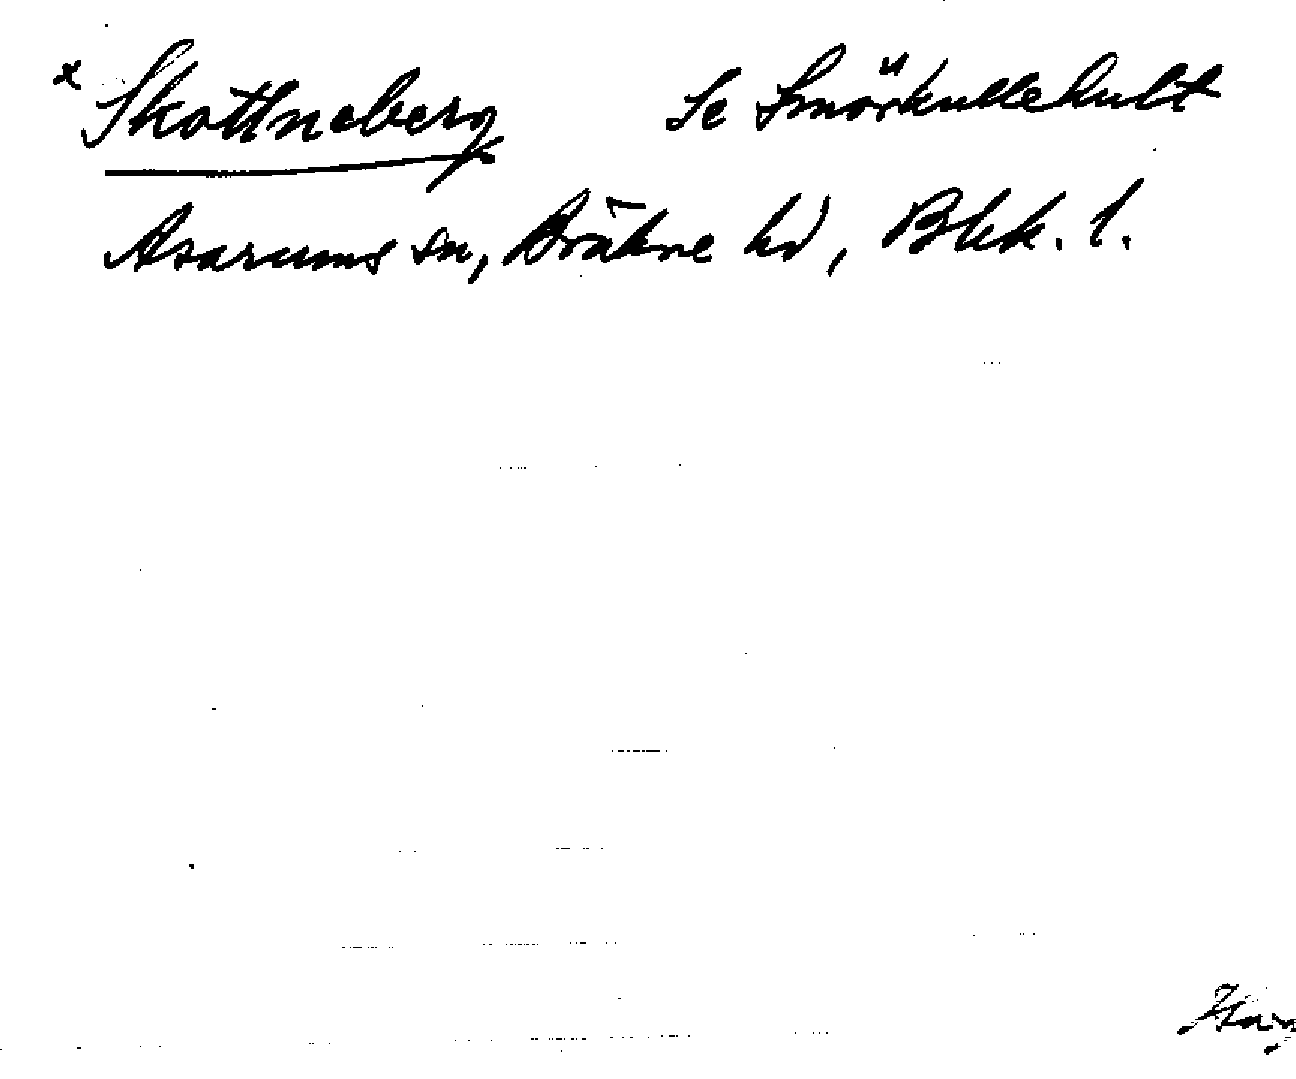 x Skottneberg Se Smörkullehult
Asarums sn, Bräkne hd, Blek. l.